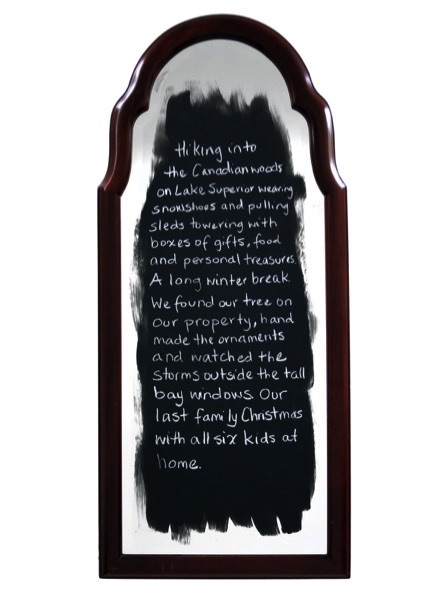 Hiking into
the Canadian woods
on Lake Superior wearing
snowshoes and pulling
sleds towering with
boxes of gifts, food
and personal treasures.
A long winter break.
We found our tree on
our property, hand
made the ornaments
and watched the
storms outside the tall
bay windows. Our
last family Christmas
with all six kids at
home.